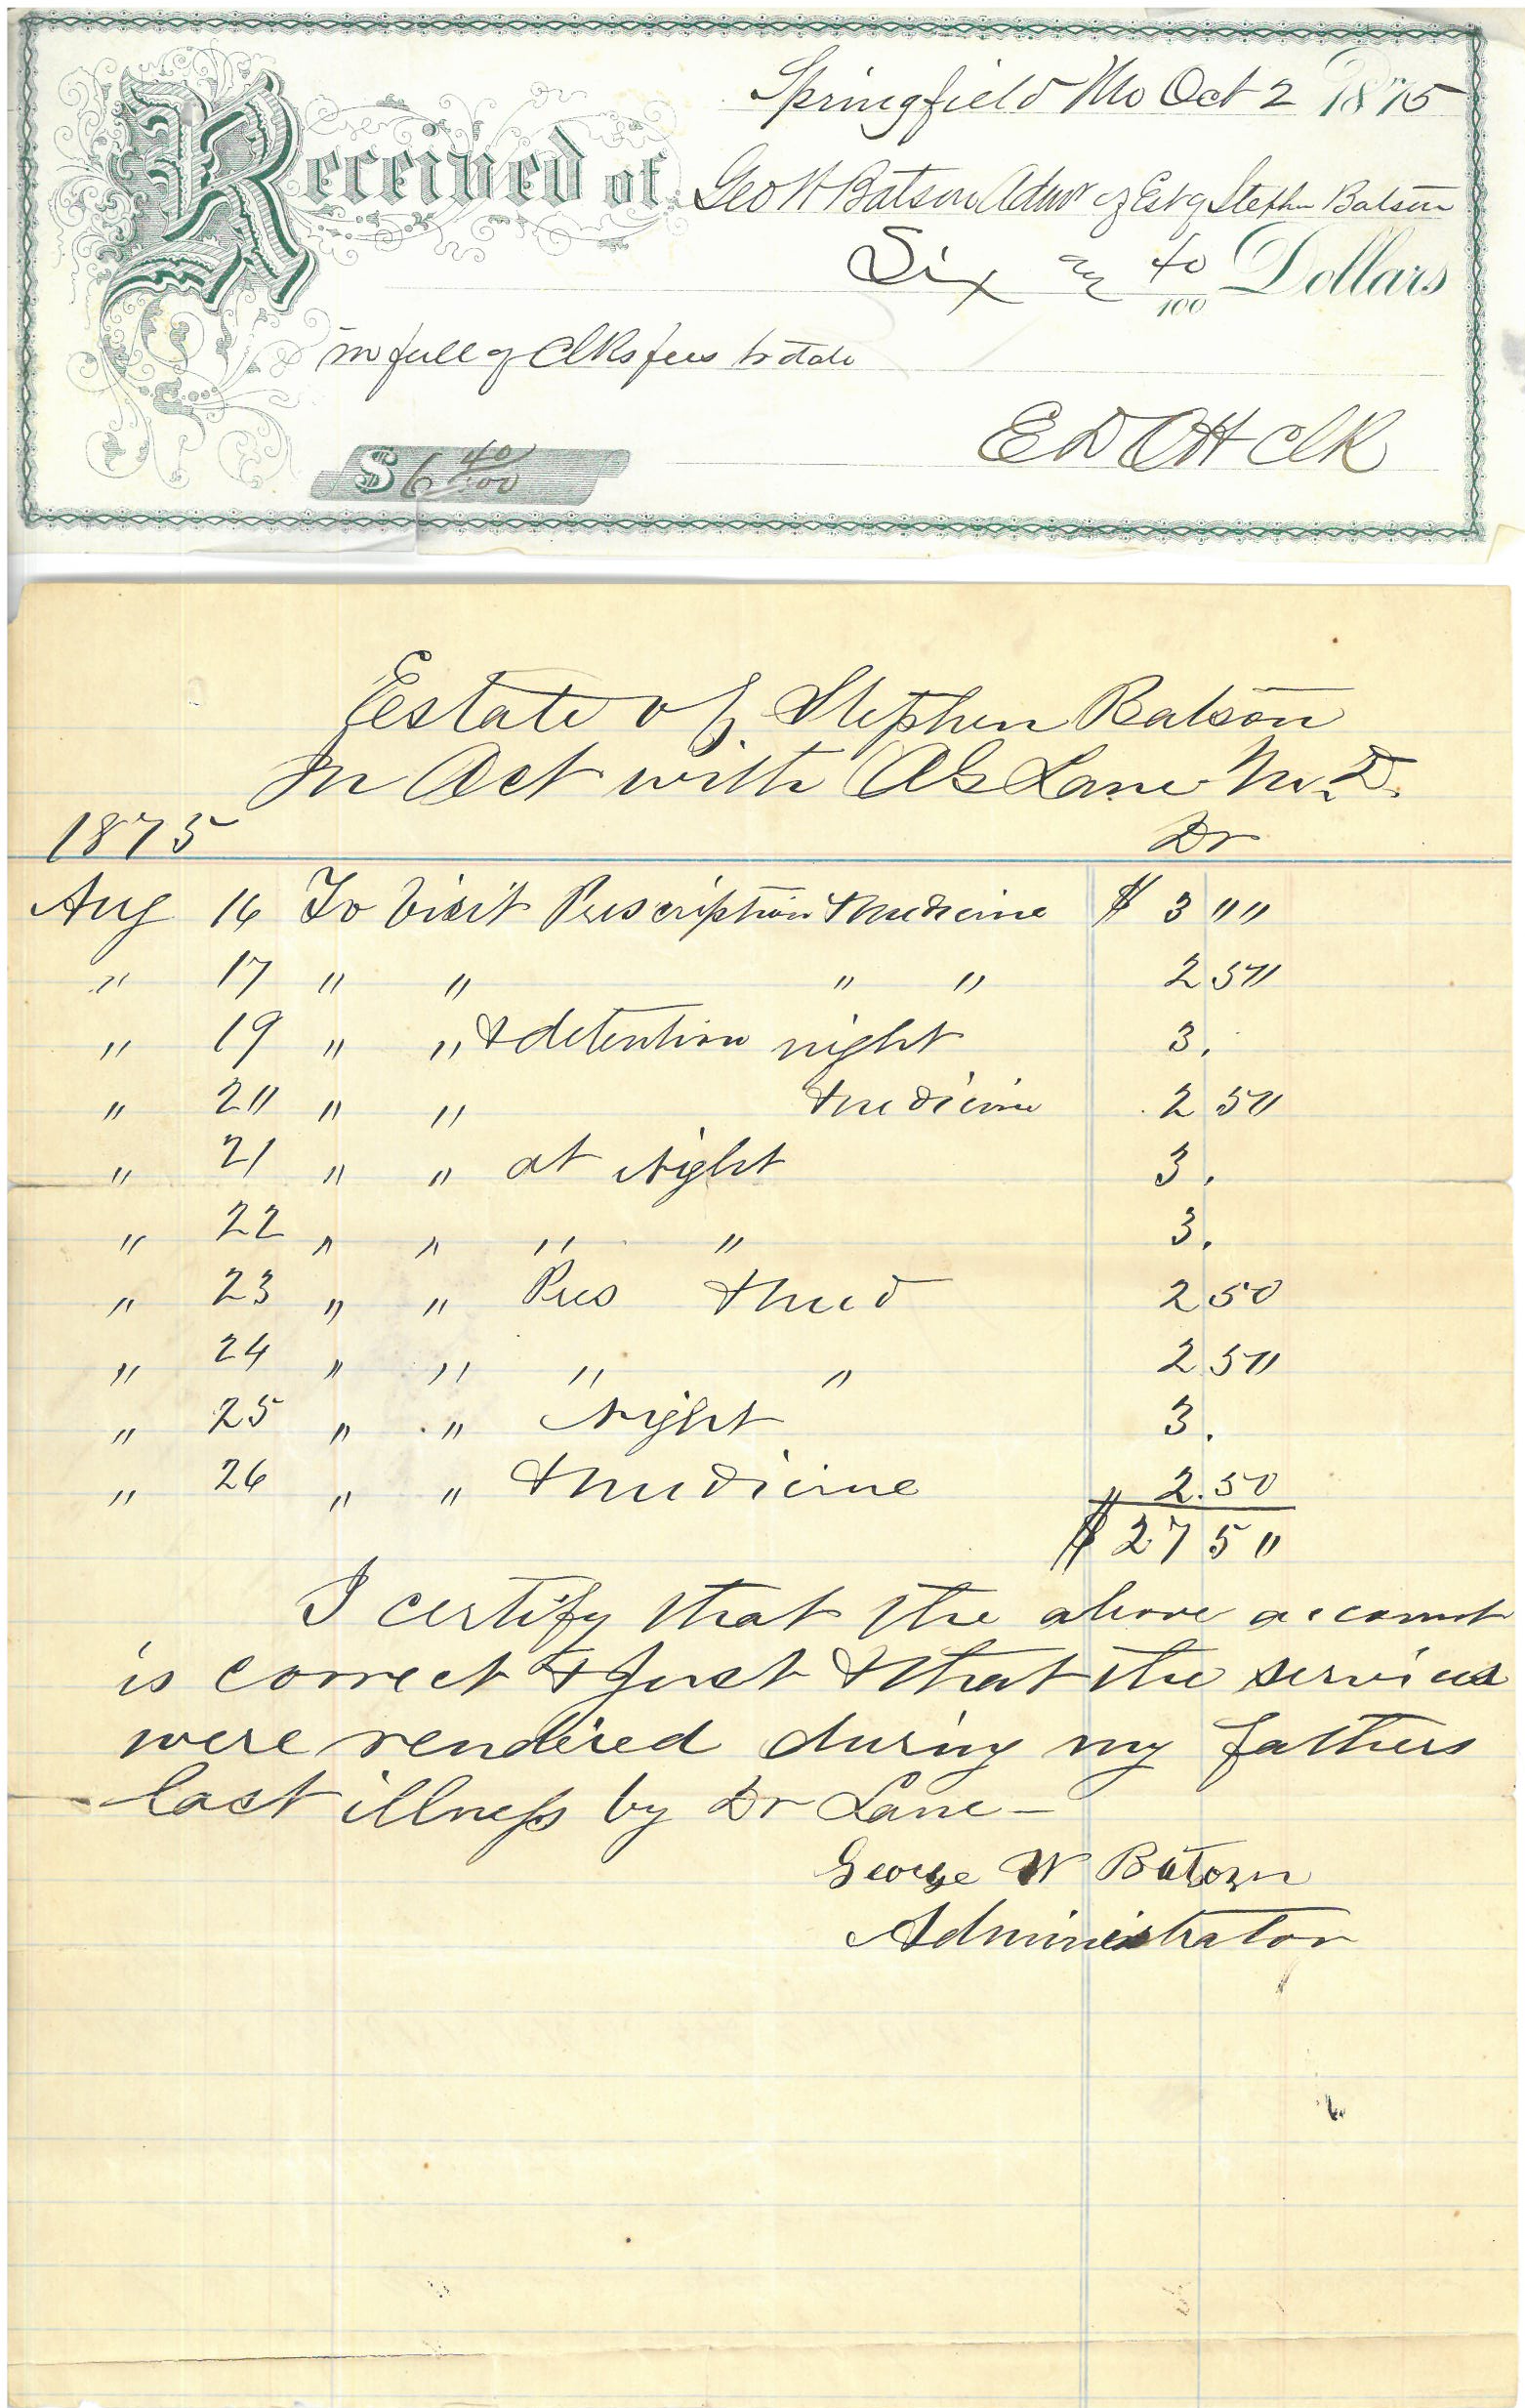 Springfield Mo Oct 2 1875
Received of Geo W Batson Admr of Est of Stephen Batson
Six & 40/100 Dollars
in full of Clks fees to date
$6 40/100 E D Ott Clk
Estate of Stephen Batson
In Act with A G Lane M.D.
1875 Dr
Aug 16 To Visit Prescription & medicine $ 3 " "
" 17 " " " " 2 5"
" 19 " " & detention night 3.
" 2" " " & medicine 2 5"
" 21 " " at Night 3.
" 22 " " " " 3.
" 23 " " Pres & med 2 50
" 24 " " " " 2 5"
" 25 " " Night 3.
" 26 " " & medicine " 2.50
$ 27 5"
I certify that the above account
is correct & just & that the services
were rendered during my fathers
last illness by Dr Lane —
George W Batson
Administrator